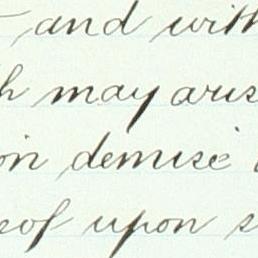 and with
may aris
demise
upon